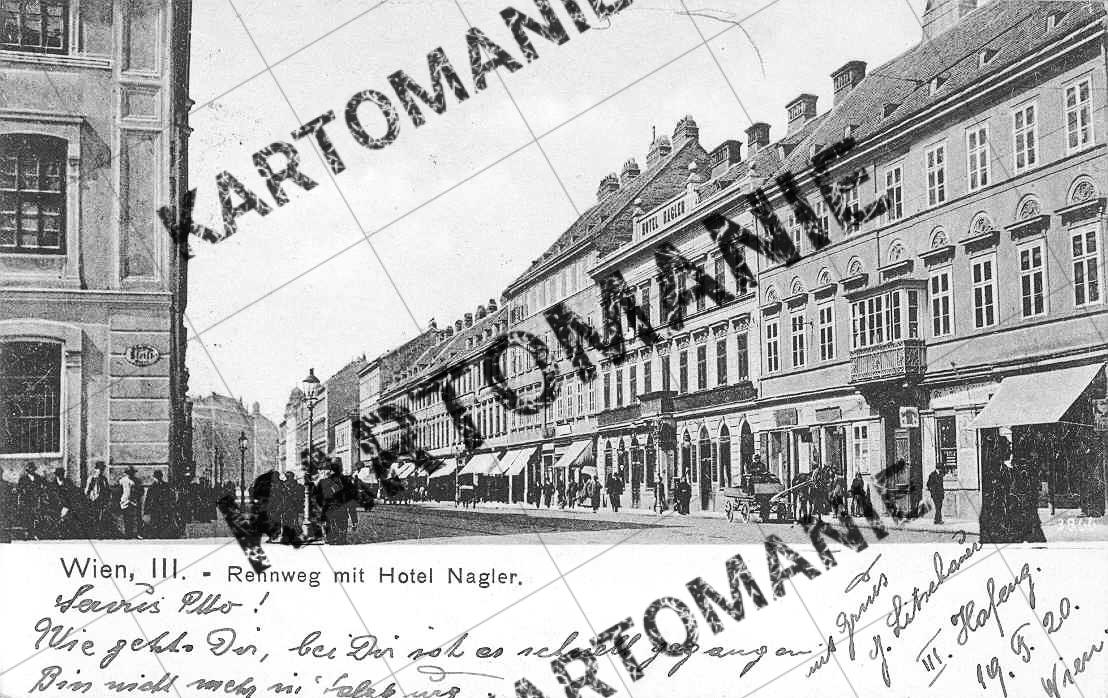 HOTEL NAGLER
3844
Wien, III. - Rennweg mit Hotel Nagler.
Servus Otto!
Wie geht's Dir, bei Dir ist es schnell gegangen
Bin nicht mehr in Salzburg
mit Gruss
III. Hafeng.
19. 20.
Wien
KARTOMANIE
KARTOMANIE
KARTOMANIE
KARTOMANIE